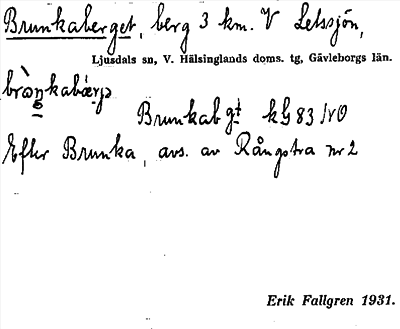 Brunkaberget, berg 3 km. V Letssjön,
Ljusdals sn, V. Hälsinglands doms. tg, Gävleborgs län.
Brunkab gt kG 83
Efter Brunka, avs. av Rångstra nr 2
Erik Fallgren 1931.